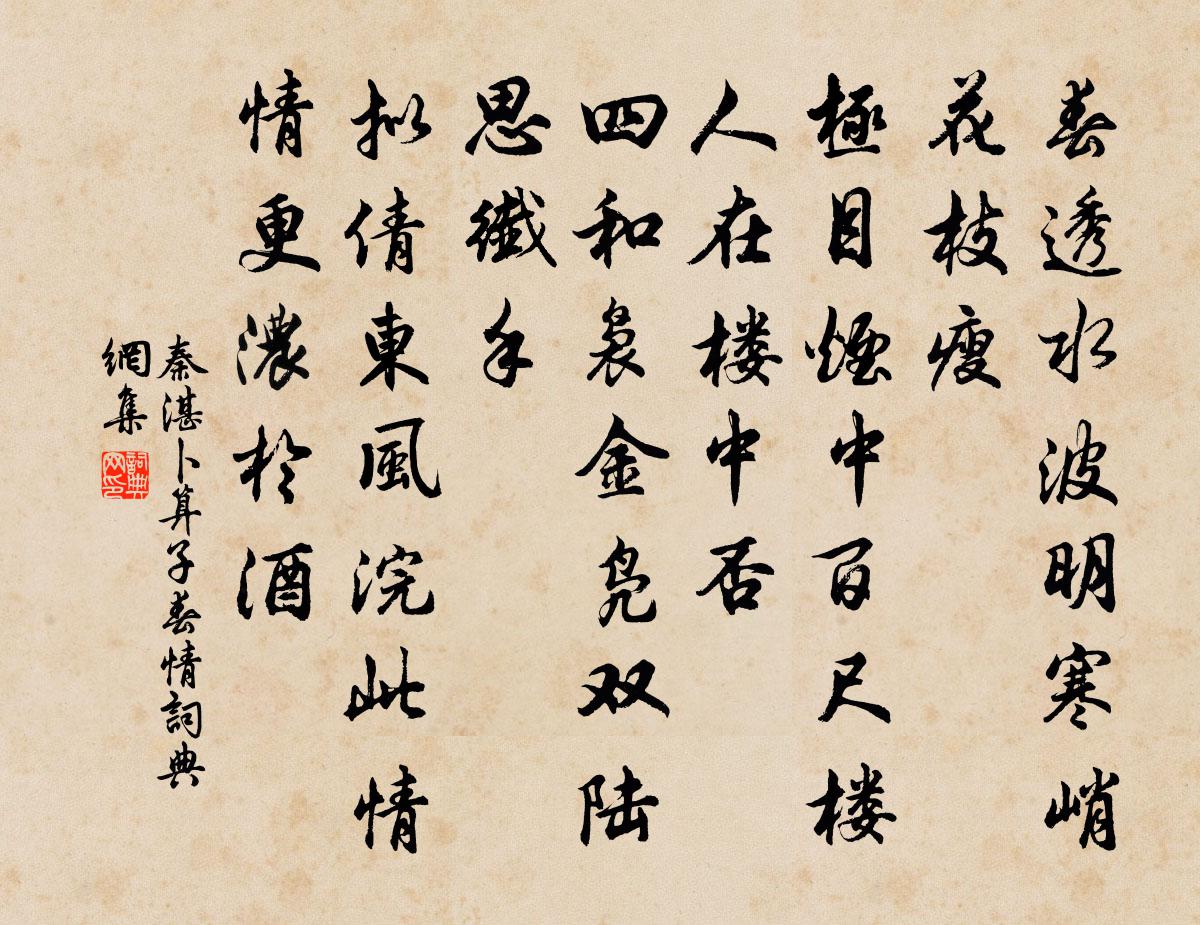 春透水波明寒峭
花枝瘦
極目煙中百尺楼
人在楼中否
四和裊金鳧双陆
思纖手
拟倩東風浣此情
情更濃於酒
秦湛卜算子春情詞典
網集
詞典
网印